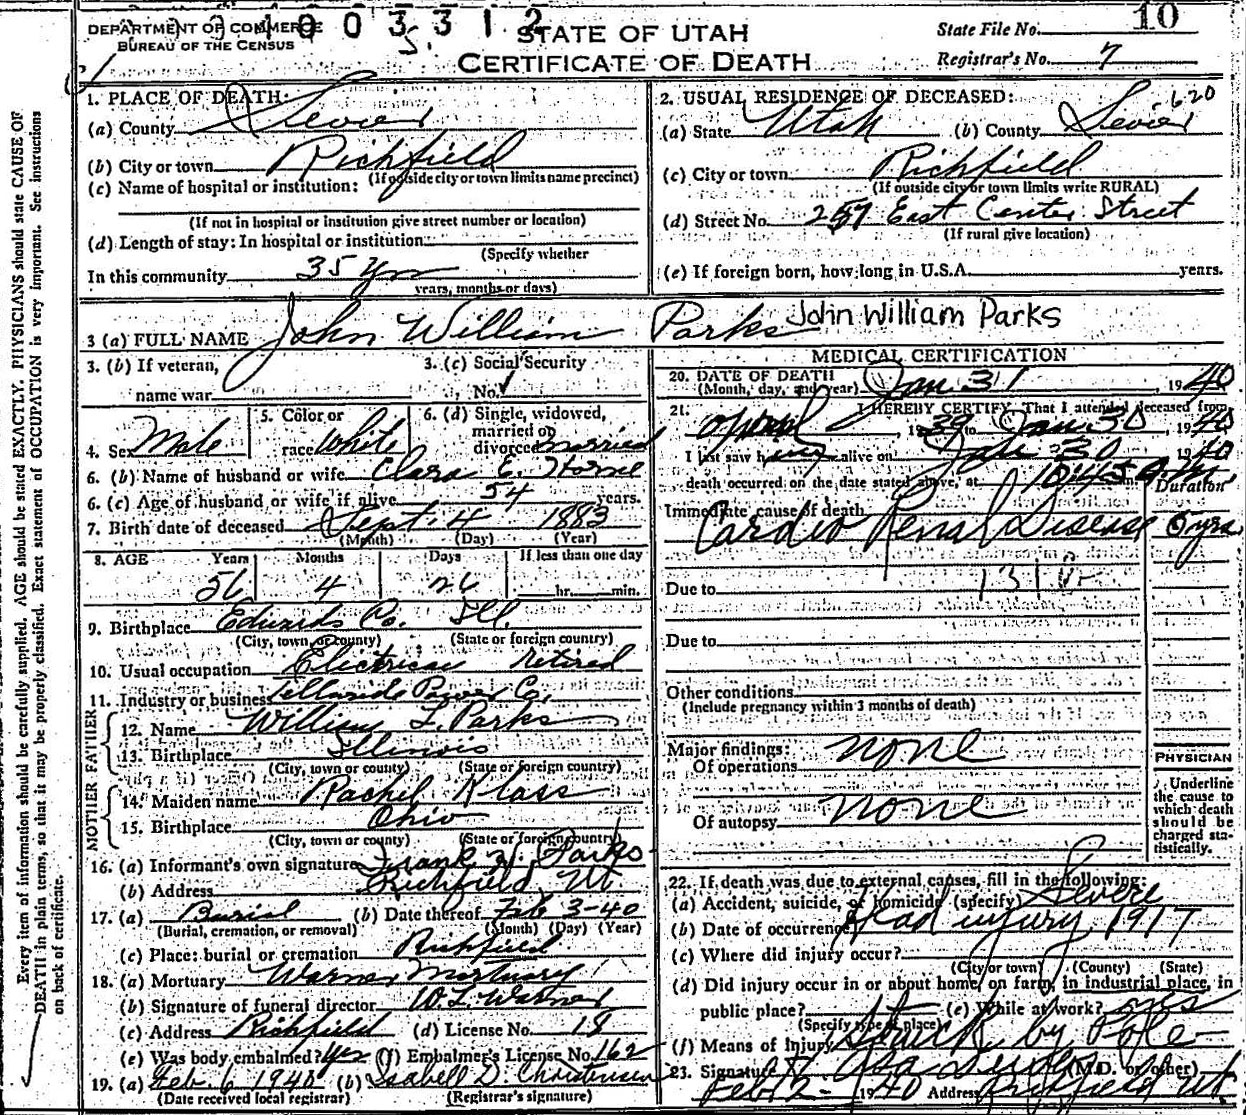 DEPARTMENT OF COMMERCE
BUREAU OF THE CENSUS
003312
STATE OF UTAH
CERTIFICATE OF DEATH
State File No. 10
Registrar's No. 7
Every item of information should be carefully supplied. AGE should be stated EXACTLY. PHYSICIANS should state CAUSE OF
DEATH in plain terms, so that it may be properly classified. Exact statement of OCCUPATION is very important. See instructions
on back of certificate.
1. PLACE OF DEATH:
(a) County Sevier
(b) City or town Richfield
(If outside city or town limits name precinct)
(c) Name of hospital or institution:
(If not in hospital or institution give street number or location)
(d) Length of stay: In hospital or institution
(Specify whether
In this community 35 yrs
years, months or days)
2. USUAL RESIDENCE OF DECEASED: 620
(a) State Utah (b) County Sevier
(c) City or town Richfield
(If outside city or town limits write RURAL)
(d) Street No. 257 East Center Street
(If rural give location)
(e) If foreign born, how long in U.S.A. years.
3 (a) FULL NAME John William Parks John William Parks
3. (b) If veteran,
name war
3. (c) Social Security
No.
4. Sex Male
5. Color or
race White
6. (d) Single, widowed,
married or
divorced married
6. (b) Name of husband or wife Clara E. Horne
6. (c) Age of husband or wife if alive 54 years.
7. Birth date of deceased Sept. 4 1883
(Month) (Day) (Year)
8. AGE Years Months Days If less than one day
56 4 26 hr. min.
9. Birthplace Edwards Co. Ill.
(City, town, or county) (State or foreign country)
10. Usual occupation Electrician retired
11. Industry or business Telluride Power Co.
FATHER
12. Name William L. Parks
13. Birthplace Illinois
(City, town or county) (State or foreign country)
MOTHER
14. Maiden name Rachel Klass
15. Birthplace Ohio
(City, town or county) (State or foreign country)
16. (a) Informant's own signature Frank W. Parks
(b) Address Richfield, Ut
17. (a) Burial (b) Date thereof Feb 3-40
(Burial, cremation, or removal) (Month) (Day) (Year)
(c) Place: burial or cremation Richfield
18. (a) Mortuary Warner Mortuary
(b) Signature of funeral director W. L. Warner
(c) Address Richfield (d) License No. 18
(e) Was body embalmed? Yes (f) Embalmer's License No. 162
19. (a) Feb. 6 1940 (b) Isabell D. Christensen
(Date received local registrar) (Registrar's signature)
MEDICAL CERTIFICATION
20. DATE OF DEATH
(Month, day, and year) Jan 31, 1940
21. I HEREBY CERTIFY, That I attended deceased from
April, 1939 to Jan 30, 1940
I last saw him alive on Jan 30 1940
death occurred on the date stated above, at 10:45 a.m.
Duration
Immediate cause of death
Cardio Renal Disease 5 yrs
Due to 131
Due to
Other conditions
(Include pregnancy within 3 months of death)
Major findings:
Of operations none
Of autopsy none
PHYSICIAN
Underline
the cause to
which death
should be
charged sta-
tistically.
22. If death was due to external causes, fill in the following:
(a) Accident, suicide, or homicide (specify) Severe
(b) Date of occurrence Head injury 1917
(c) Where did injury occur?
(City or town) (County) (State)
(d) Did injury occur in or about home, on farm, in industrial place, in
public place? (e) While at work? yes
(Specify type of place)
(f) Means of Injury Struck by Pole
23. Signature (M.D. or other)
Feb 2- 1940 Address Richfield Ut.